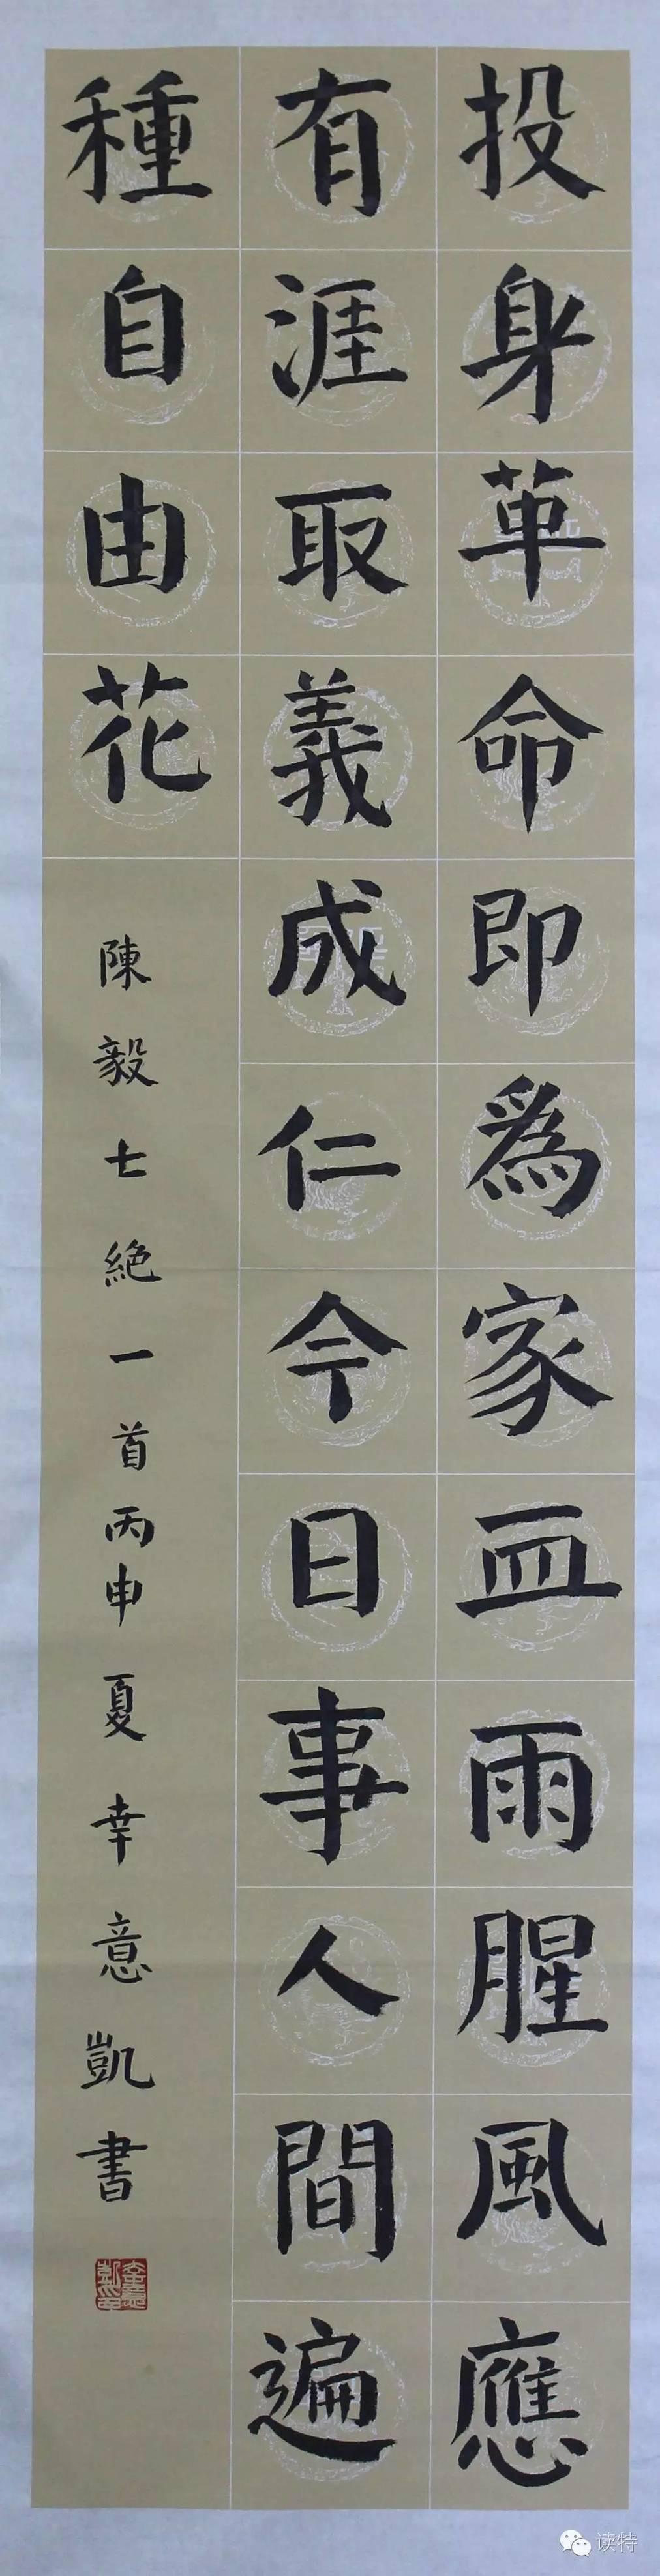 投身革命即為家血雨腥風應
有涯取義成仁今日事人間遍
種自由花
陳毅七絕一首丙申夏幸意凱書
读特